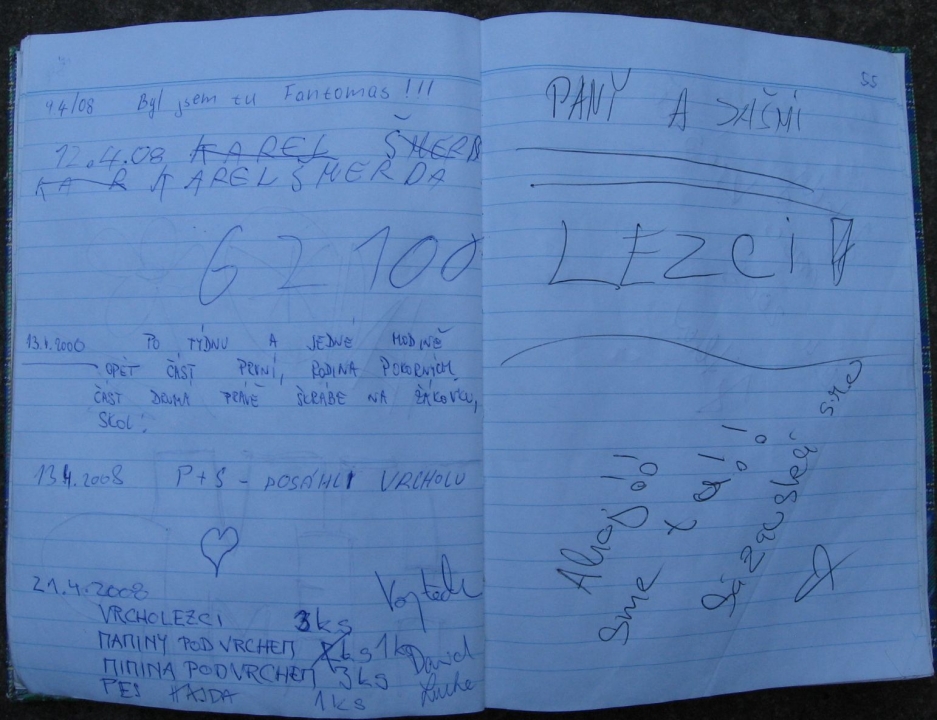 4 4/08 Byl jsem tu Fantomas !!!
12.4.08 KAREL ŠMERD
KA R KAREL ŠMERDA
62100
PO TÝDNU A JEDNÉ HODINĚ
OPĚT ČÁST PRVNÍ, RODINA POKORNÝCH.
ČÁST DRUHÁ PRÁVĚ ŠKRÁBE NA ŽÁKOVKU,
SKOL!
13.4.2008 P+S - DOSÁHLI VRCHOLU
21.4.2008 Vojtěch
VRCHOLEZCI 3ks
MAMINY POD VRCHEM 1ks David
MIMINA POD VRCHEM 3ks
PES HAJDA 1ks
55
PANÝ A DAŠMI
LEZCI
Ahoj
Sme
s.r.o